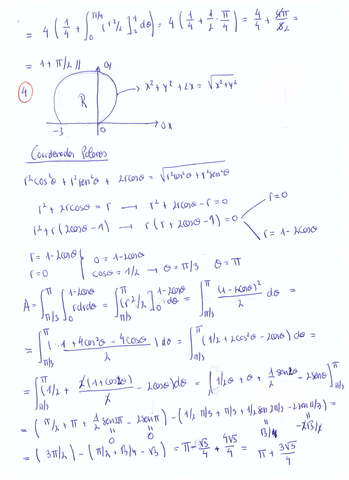 = 4 ( 1/4 + ∫₀^{π/4} [r²/2]₁ dθ = 4 ( 1/4 + 1/2 · π/4 ) = 4/4 + 4π/8₂ =
= 1 + π/2 //
Oy
④ R → x² + y² + 2x = √x²+y²
-3 0 Ox
Coordenadas Polares
r²cos²θ + r²sen²θ + 2rcosθ = √r²cos²θ + r²sen²θ
r² + 2rcosθ = r → r² + 2rcosθ - r = 0
r=0
r² + r (2cosθ - 1) → r (r + 2cosθ - 1) = 0
r = 1 - 2cosθ
r = 1-2cosθ } 0 = 1-2cosθ
r = 0 cosθ = 1/2 → θ = π/3 θ = π
A = ∫_{π/3}^{π} ∫₀^{1-2cosθ} r dr dθ = ∫_{π/3}^{π} [r²/2]₀^{1-2cosθ} dθ = ∫_{π/3}^{π} (1-2cosθ)²/2 dθ =
= ∫_{π/3}^{π} ( 1 + 4cos²θ - 4cosθ / 2 ) dθ = ∫_{π/3}^{π} (1/2 + 2cos²θ - 2cosθ) dθ =
= ∫_{π/3}^{π} (1/2 + 2(1+cos2θ)/2 - 2cosθ) dθ = [ 1/2θ + θ + 1/2 sen2θ - 2senθ ]_{π/3}^{π}
= ( π/2 + π + 1/2 sen2π - 2senπ ) - ( 1/2 · π/3 + π/3 + 1/2 sen 2π/3 - 2senπ/3 ) =
0 0 √3/4 -2√3/2
= ( 3π/2 ) - ( π/2 + √3/4 - √3 ) = π - √3/4 + 4√3/4 = π + 3√3/4